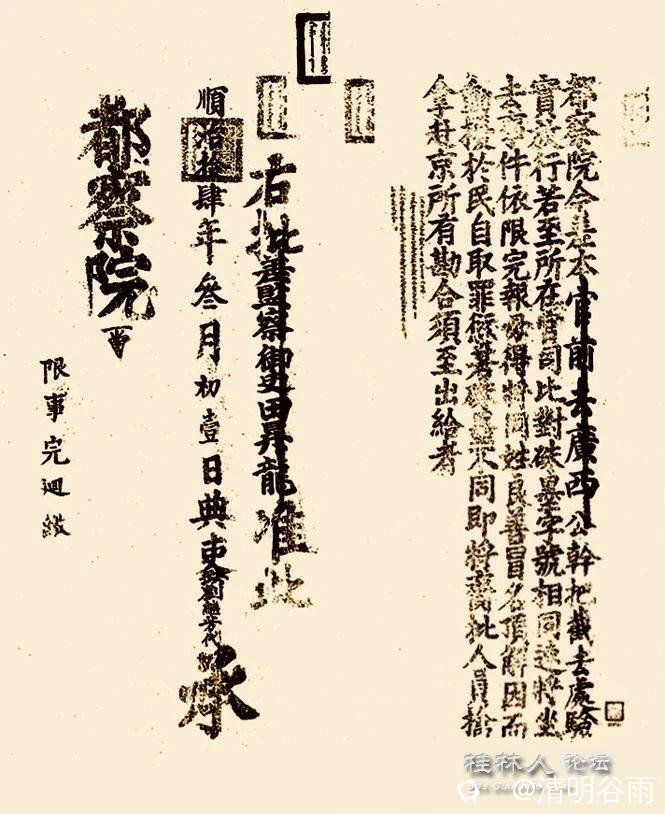 都察院今差本官前去廣西公幹把截去處驗
實放行若至所在官司比對硃墨字號相同速將坐
去事件依限完報毋得將同姓良善冒名頂解因而
擾於民自取罪愆若硃墨不同即將齎批人員擒
拿赴京所有勘合須至出給者
右批差監察御史田昇龍准此
順治拾肆年叁月初壹日典吏劉繼芳代承
都察院
限事完迴繳
桂林人论坛
@清明谷雨